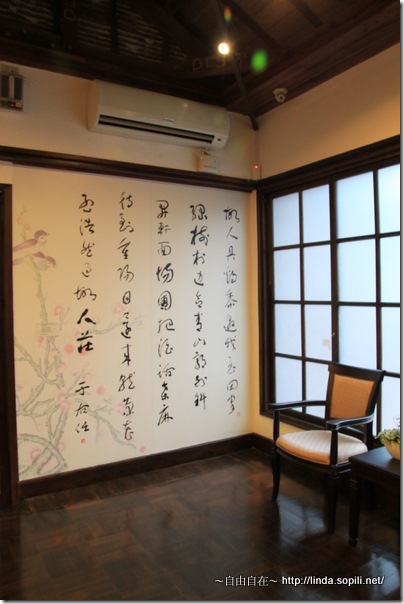 故人具鷄黍邀我至田家
綠樹村邊合青山郭外斜
開軒面場圃把酒話桑麻
待到重陽日還來就菊花
孟浩然過故人莊
于右任
～自由自在～ http://linda.sopili.net/